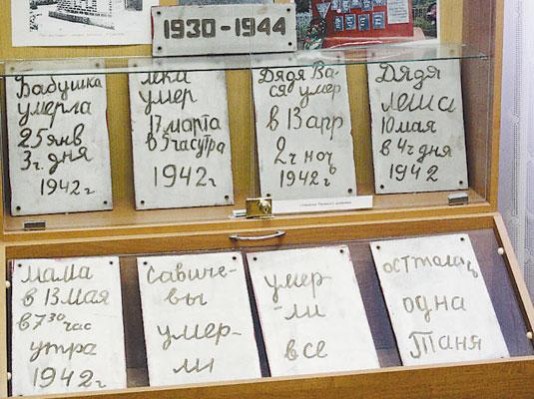 1930-1944
Бабушка
умерла
25 янв
3 ч. дня
1942 г
Лека
умер
17 марта
в 5 час утра
1942 г
Дядя Ва-
ся умер
в 13 апр
2 ч ноч
1942 г
Дядя
Леша
10 мая
в 4 ч дня
1942
Мама
в 13 мая
в 7 30 час
утра
1942 г
Савиче-
вы
умер-
ли
умер-
-ли
все
осталась
одна
Таня